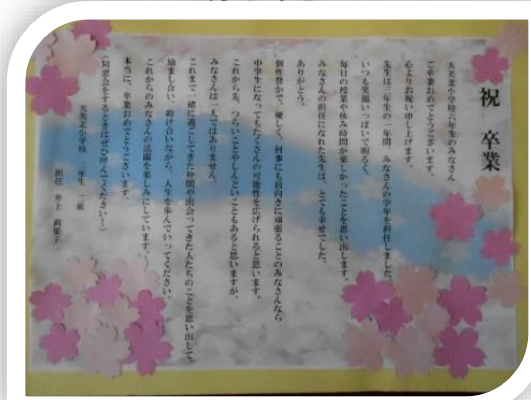 祝 卒業
天美北小学校六年生のみなさん
ご卒業おめでとうございます。
心よりお祝い申し上げます。
先生は三年生の一年間、みなさんの学年を担任しました。
いつも笑顔いっぱいで明るく、
毎日の授業や休み時間が楽しかったことを思い出します。
みなさんの担任になれた先生は、とても幸せでした。
ありがとう。
個性豊かで、優しく、何事にも前向きに頑張ることのみなさんなら
中学生になってもたくさんの可能性を広げられると思います。
これから先、つらいことやしんどいこともあると思いますが、
みなさんは一人ではありません。
これまで一緒に過ごしてきた仲間や出会ってきた人たちのことを思い出して、
励まし合い、助け合いながら、人生を歩んでいってください。
これからのみなさんの活躍を楽しみにしています。
本当に、卒業おめでとうございます。
(同窓会をするときはぜひ呼んでください!)
天美北小学校 三年生 二組
担任 井上